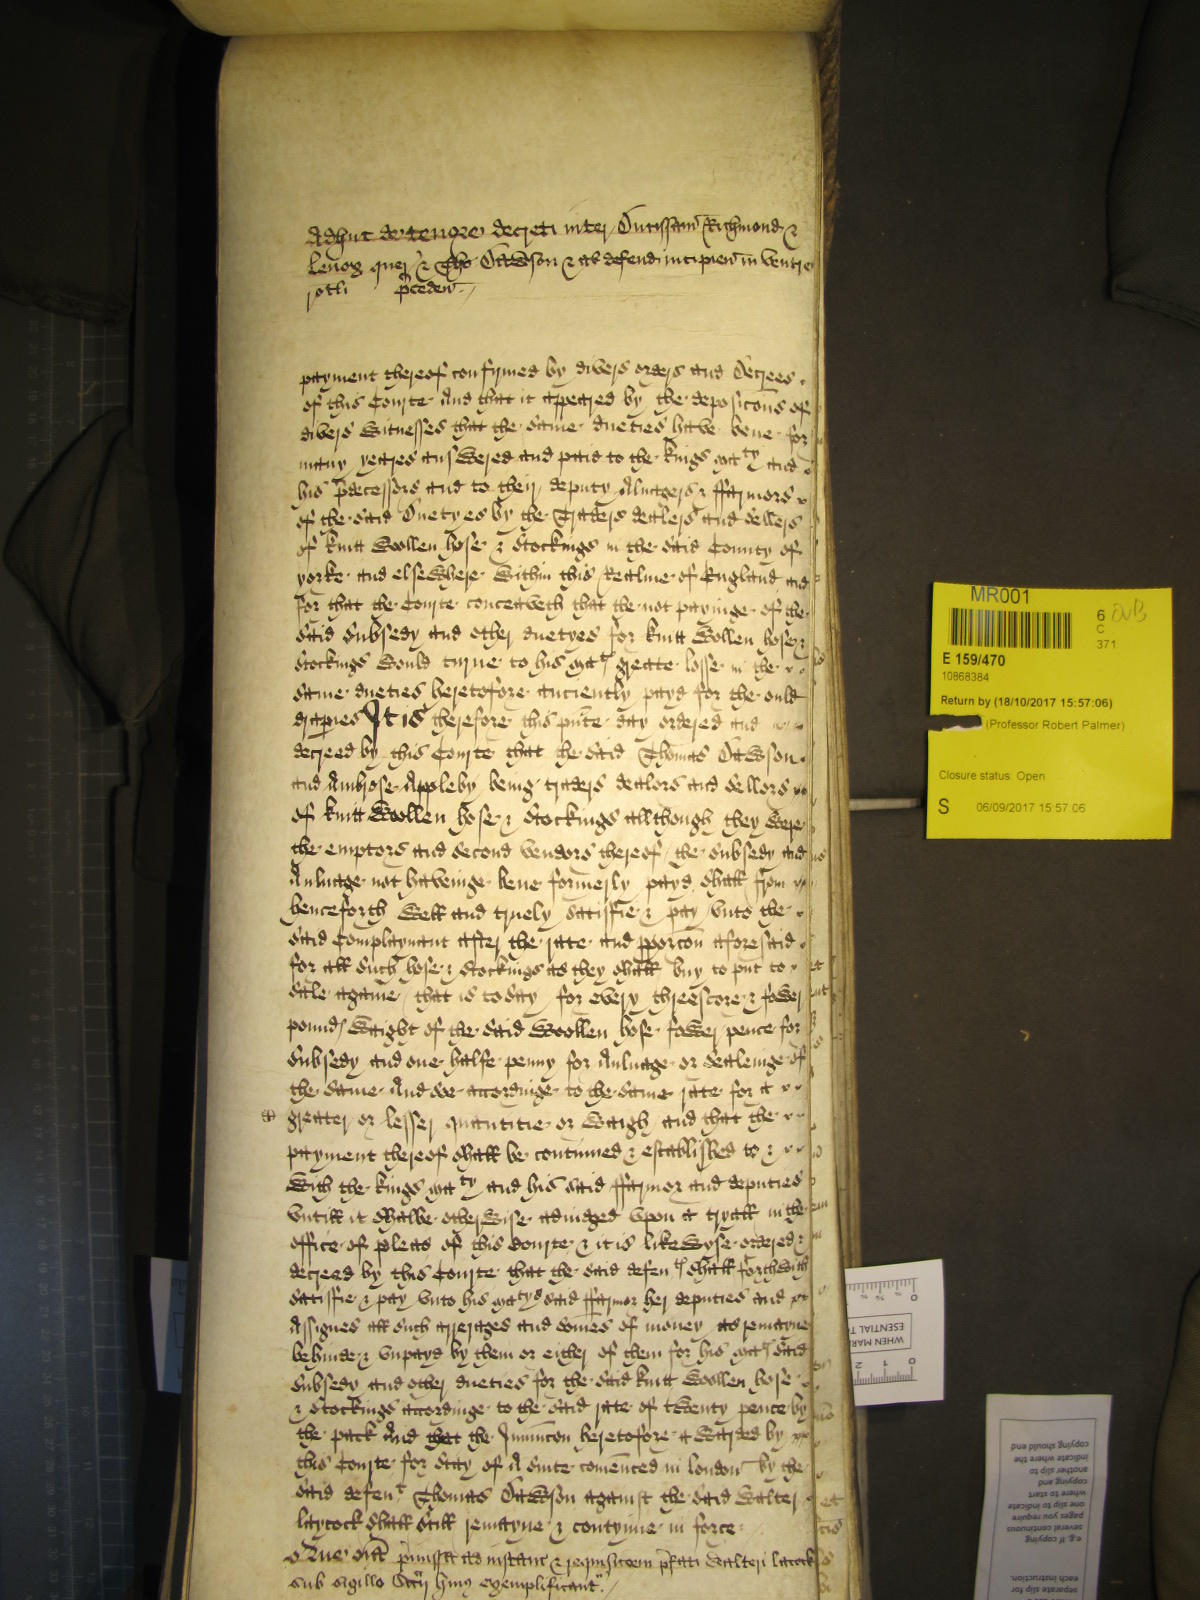 Adhuc de tenore decreti inter Ducissam Richmond &
Lenox quer & Tho Lawson & al defend incipien in ventre
rotli p̃ceden
payment thereof confirmed by divers orders and decrees
of this Courte And that it appeared by the deposicons of
divers witnesses that the same dueties have bene for
many yeares answered and paid to the kings ma:ty and
his p̃decessors and to their deputy Alnagers & ffarmors
of the said Duetyes by the Traders dealers and sellers
of knitt woollen hose & stockings in the said County of
yorke and elsewhere within this Realme of England and
for that the Courte conceaveth that the not payinge of the
said subsedy and other duetyes for knitt wollen hose &
stockings would turne to his ma:ts greate losse in the
same dueties heretofore anciently payd for the ould
drapries It is therefore this pñte day ordered and
decreed by this Courte that the said Thomas Lawson
and Ambrose Appleby being traders dealors and sellors
of knitt woollen hose & stockings allthough they were
the emptors and second vendors thereof the subsedy and
Aulnage not haveinge bene formerly payd shall from
henceforth well and truely satisfie & pay unto the
said Complaynant after the rate and pporcon aforesaid
for all such hose & stockings as they shall buy to put to
sale againe that is to say for every threescore & fower
pounds waight of the said woollen hose fower pence for
subsedy and one halfe penny for Aulnage or sealeinge of
the same And soe accordinge to the same rate for a
greater or lesser quantitie or waigh and that the
payment thereof shall be continued & established to &
with the kings ma:ty and his said ffarmor and deputies
untill it shalbe otherwise adiudged upon a tryall in the
office of pleas of this Courte & it is likewyse ordered &
decreed by this Courte that the said defen:ts shall forthwith
satisfie & pay unto his ma:tys said ffarmor her deputies and
Assignes all such arrerages and somes of money as remayne
behinde & unpayd by them or either of them for his ma:ts said
subsedy and other dueties for the said knitt woollen hose
& stockings accordinge to the said rate of twenty pence by
the pack And that the Iniuncon heretofore awarded by
this Courte for stay of A suite comenced in london by the
said defen:t Thomas Lawson against the said Walter
laycock shall still remayne & contynue in force
Que om̃ia p̃missa ad instanc & requisicoem p̃fati Walteri lacock
sub sigillo Sccij huius exemplificant
MR001
6
C
371
E 159/470
10868384
Return by (18/10/2017 15:57:06)
(Professor Robert Palmer)
Closure status: Open
S 06/09/2017 15:57:06
WHEN MAR
ESENTIAL T
0 1 2
e.g. If copying
several continuous
pages you require
one slip to indicate
where to start
copying and
another slip to
indicate where the
copying should end
separate slip for
each instruction.